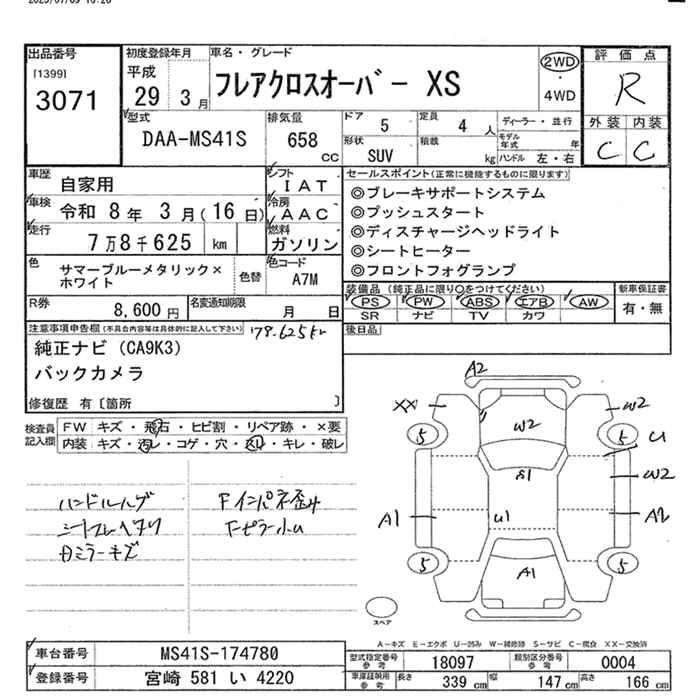 出品番号
[1399]
3071
初度登録年月
平成
29 3 月
車名・グレード
フレアクロスオーバー XS
2WD
・
4WD
評価点
R
外装 内装
C C
型式
DAA-MS41S
排気量
658
cc
ドア
5
定員
4 人
形状
SUV
積載
kg
ディーラー・並行
モデル
年式 年
ハンドル 左・右
車歴
自家用
車検
令和 8 年 3 月(16 日)
走行
7 万 8 千 625 km
シフト
I A T
冷房
A A C
燃料
ガソリン
セールスポイント(正常に機能するものに限ります)
◎ブレーキサポートシステム
◎プッシュスタート
◎ディスチャージヘッドライト
◎シートヒーター
◎フロントフォグランプ
色
サマーブルーメタリック×
ホワイト
色替
色コード
A7M
装備品(純正品に限り○をつけてください)
PS PW ABS エアB AW
SR ナビ TV カワ
新車保証書
有・無
R券
8,600 円
名変通知期限
月 日
後日品
注意事項申告欄(不具合内容等は具体的に記入して下さい)
178.625km
純正ナビ (CA9K3)
バックカメラ
修復歴 有〔箇所 〕
検査員
記入欄
FW キズ・飛石・ヒビ割・リペア跡・×要
内装 キズ・汚レ・コゲ・穴・スレ・キレ・破レ
ハンドルハゲ
Fインパネ歪み
Fピラー小U
カミラーキズ
A2
XX
W2
W2
5
5
U
W2
A1
A2
U1
A1
5
5
スペア
A-キズ E-エクボ U-凹み W-補修跡 S-サビ C-腐食 XX-交換済
車台番号
MS41S-174780
登録番号
宮崎 581 い 4220
型式指定番号
参考
18097
類別区分番号
参考
0004
車庫証明用
参考
長さ 339 cm
幅 147 cm
高さ 166 cm